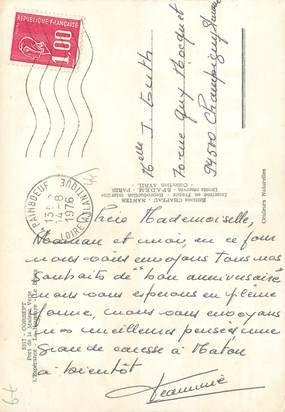 RÉPUBLIQUE FRANÇAISE
1,00
PAIMBOEUF
13H
14-8
1976
LOIRE ATLANTIQUE
Melle J. Guth
rue Guy Mocquet
94500 Champigny s/Marne
Editions CHAPEAU - NANTES
Imprimé en France Reproduction interdite
Droits réservés S.P.A.D.E.M. - PARIS
Collection AVRIL
Couleurs Naturelles
5517 - CORSEPT
Port de la Maison Verte
Chère Mademoiselle,
Maman et moi, en ce jour
nous vous envoyons tous nos
souhaits de "bon anniversaire"
nous vous espérons en pleine
forme, nous vous envoyons
nos meilleures pensées une
grande caresse à
à bientôt
Jeannine